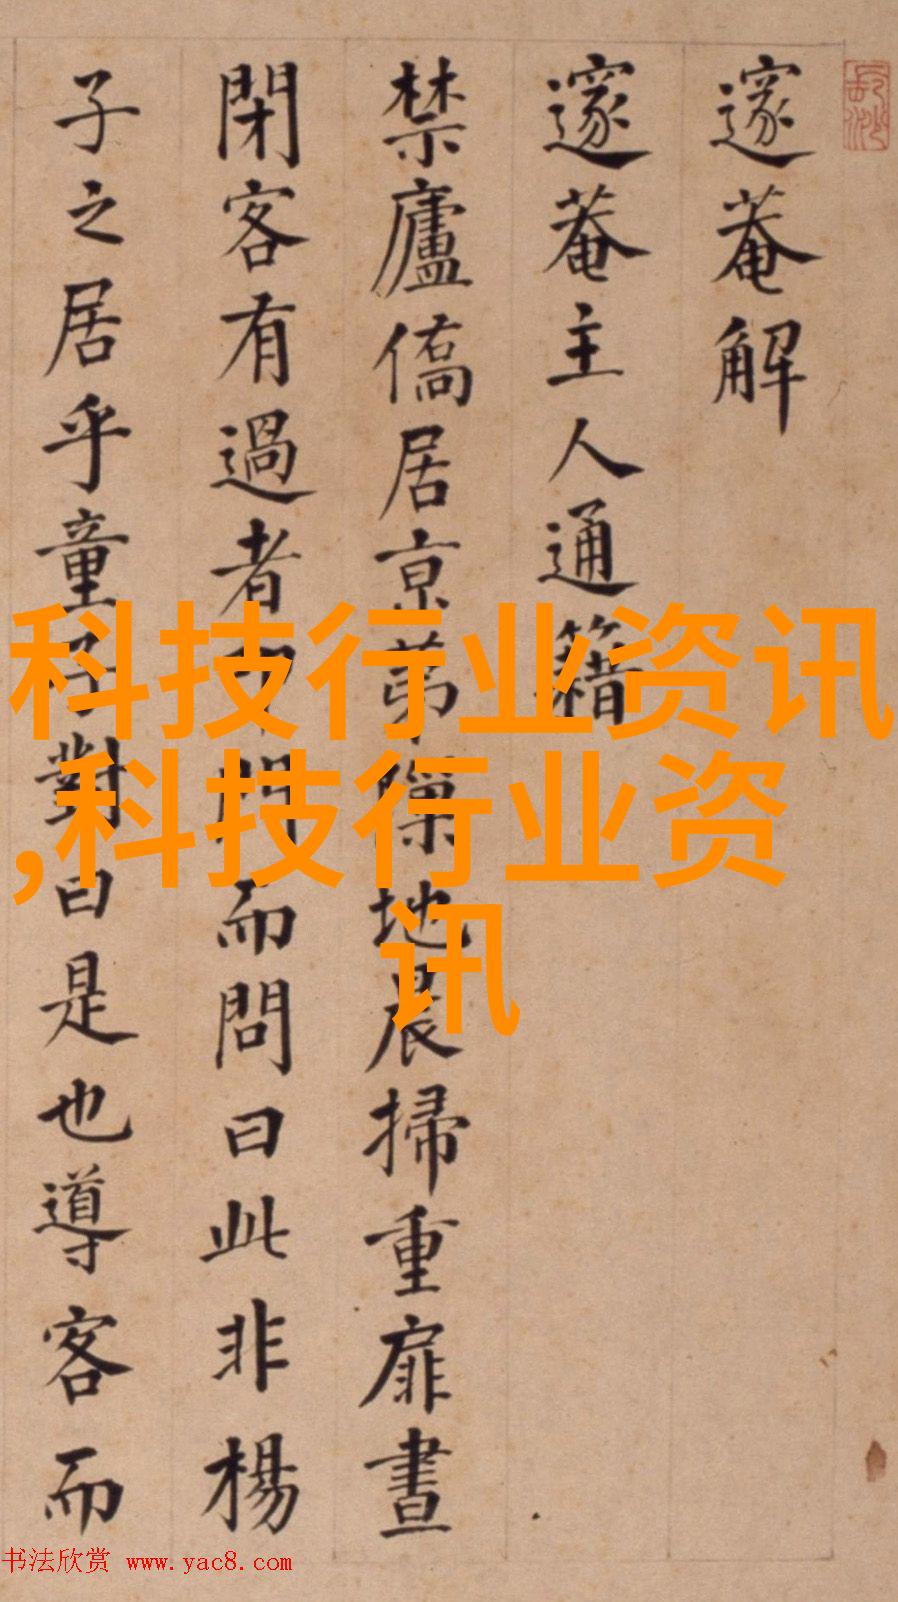 邃菴解
邃菴主人通籍
禁廬僑居京苐僳地晨掃重扉晝
閉客有過者及門而問曰此非楊
子之居乎童子對曰是也導客而
科技行业资讯
,科技行业资
讯
书法欣赏 www.yac8.com